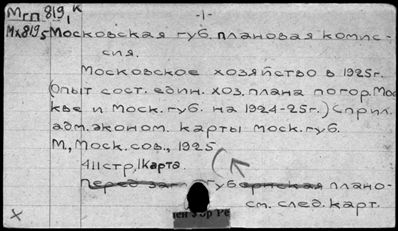 Мгп 819, к -1-
Мк819,5 Московская губ. плановая комис-
сия.
Московское хозяйство в 1925г.
(опыт сост. един. хоз. плана по гор. Мос
кве и Моск. губ. на 1924-25г.) С прил.
адм. эконом. карты Моск. губ.
М, Моск. сов., 1925
411стр, 1карта.
Перед за губернская плано-
см. след. карт.